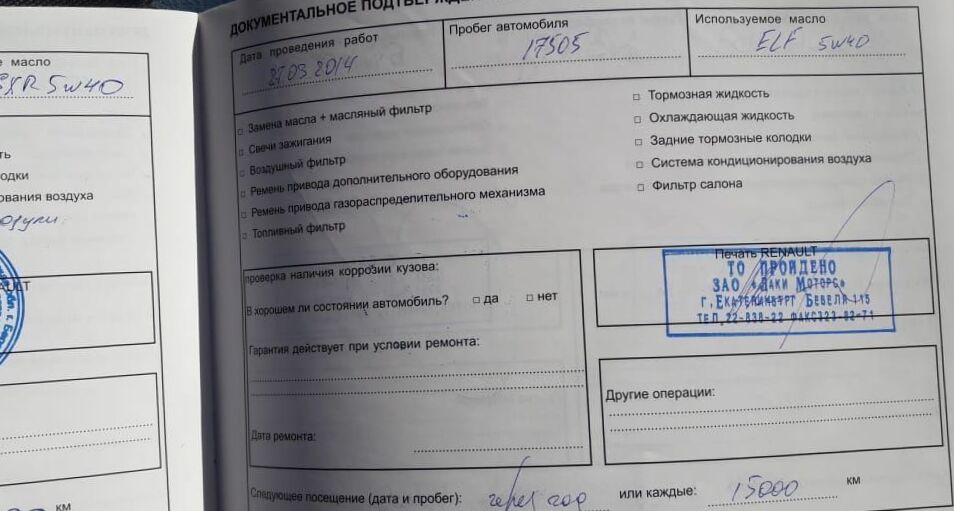 е масло
SXR 5w40
ть
одки
ования воздуха
AULT
км
ДОКУМЕНТАЛЬНОЕ
Дата проведения работ
27.03 2014
Пробег автомобиля
17505
Используемое масло
ELF 5w40
Замена масла + масляный фильтр
Свечи зажигания
Воздушный фильтр
Ремень привода дополнительного оборудования
Ремень привода газораспределительного механизма
Топливный фильтр
Тормозная жидкость
Охлаждающая жидкость
Задние тормозные колодки
Система кондиционирования воздуха
Фильтр салона
проверка наличия коррозии кузова:
В хорошем ли состоянии автомобиль? да нет
Гарантия действует при условии ремонта:
Дата ремонта:
Печать RENAULT
ТО ПРОЙДЕНО
ЗАО «Лаки Моторс»
г. Екатеринбург Бебеля 115
ТЕЛ.22-838-22 ФАКС323-82-71
Другие операции:
Следующее посещение (дата и пробег): через год или каждые: 15000 км